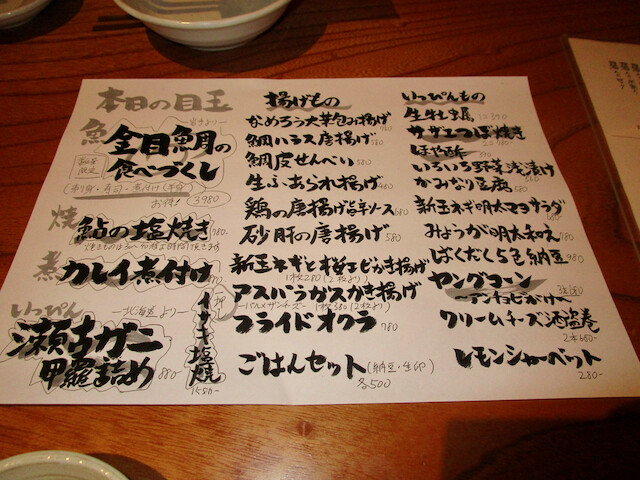 本日の目玉
魚
金目鯛の
食べづくし
刺身・寿司・煮付け(半身)
お得!
3980
焼
鮎の塩焼き
780
煮
カレイ煮付け
いっぴん
北海道より
瀬古ガニ
甲羅詰め
880-
イサキ塩焼
1580-
揚げもの
なめろう大葉包み揚げ
鯛ハラス唐揚げ
鯛皮せんべい 580
生ふあられ揚げ
鶏の唐揚げ旨辛ソース
砂肝の唐揚げ 580
新玉ネギと桜エビかき揚げ
アスパラガスかき揚げ
フライドオクラ 780
ごはんセット(納豆・生卵)
各500
いっぴんもの
生牡蠣
サザエつぼ焼き
ほや酢
いろいろ野菜浅漬け
かみなり豆腐
新玉ネギ明太マヨサラダ
みょうが明太和え
ばくだく5色納豆 980
ヤングコーン
アンチョビがけ
クリームチーズ酒盗巻
2本680-
レモンシャーベット
280-